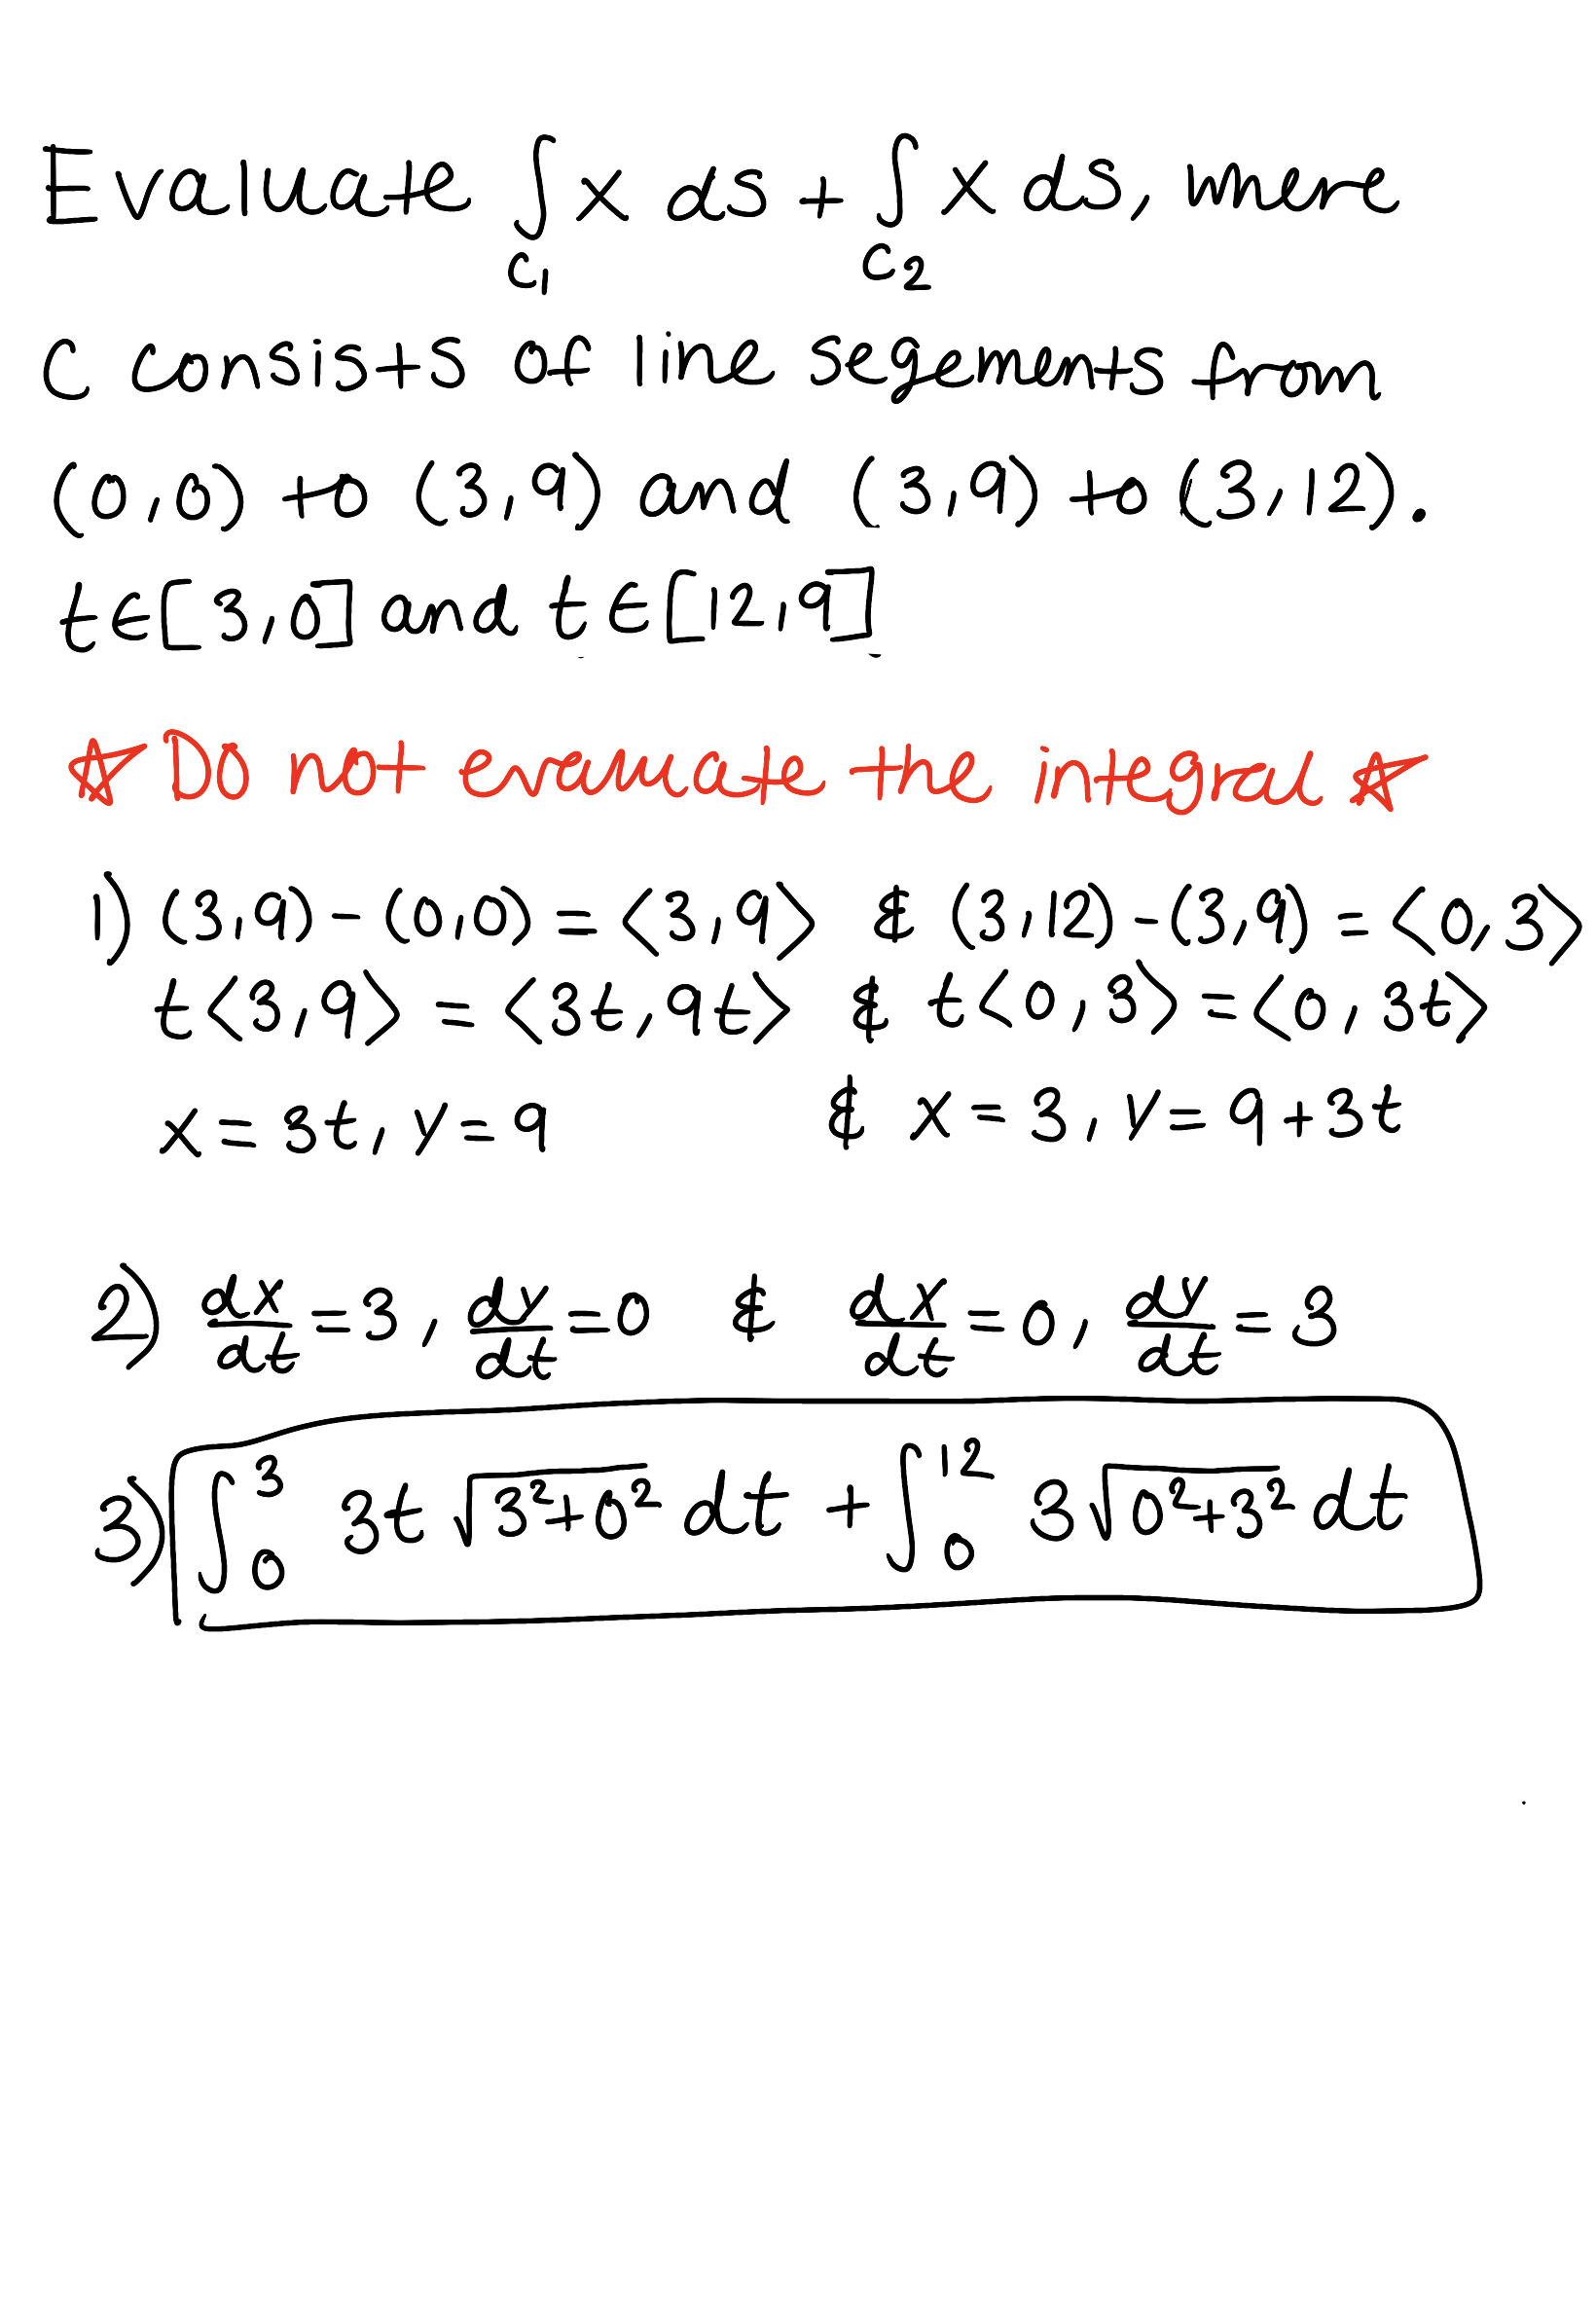 Evaluate ∫_{C₁} x ds + ∫_{C₂} x ds, where
C consists of line segements from
(0,0) to (3,9) and (3,9) to (3,12).
t∈[3,0] and t∈[12,9]
☆ Do not evaluate the integral ☆
1) (3,9)-(0,0) = <3,9> & (3,12)-(3,9) = <0,3>
t<3,9> = <3t,9t> & t<0,3> = <0,3t>
x = 3t, y = 9 & x = 3, y = 9+3t
2) dx/dt = 3, dy/dt = 0 & dx/dt = 0, dy/dt = 3
3) ∫₀³ 3t √(3²+0²) dt + ∫₀¹² 3√(0²+3²) dt